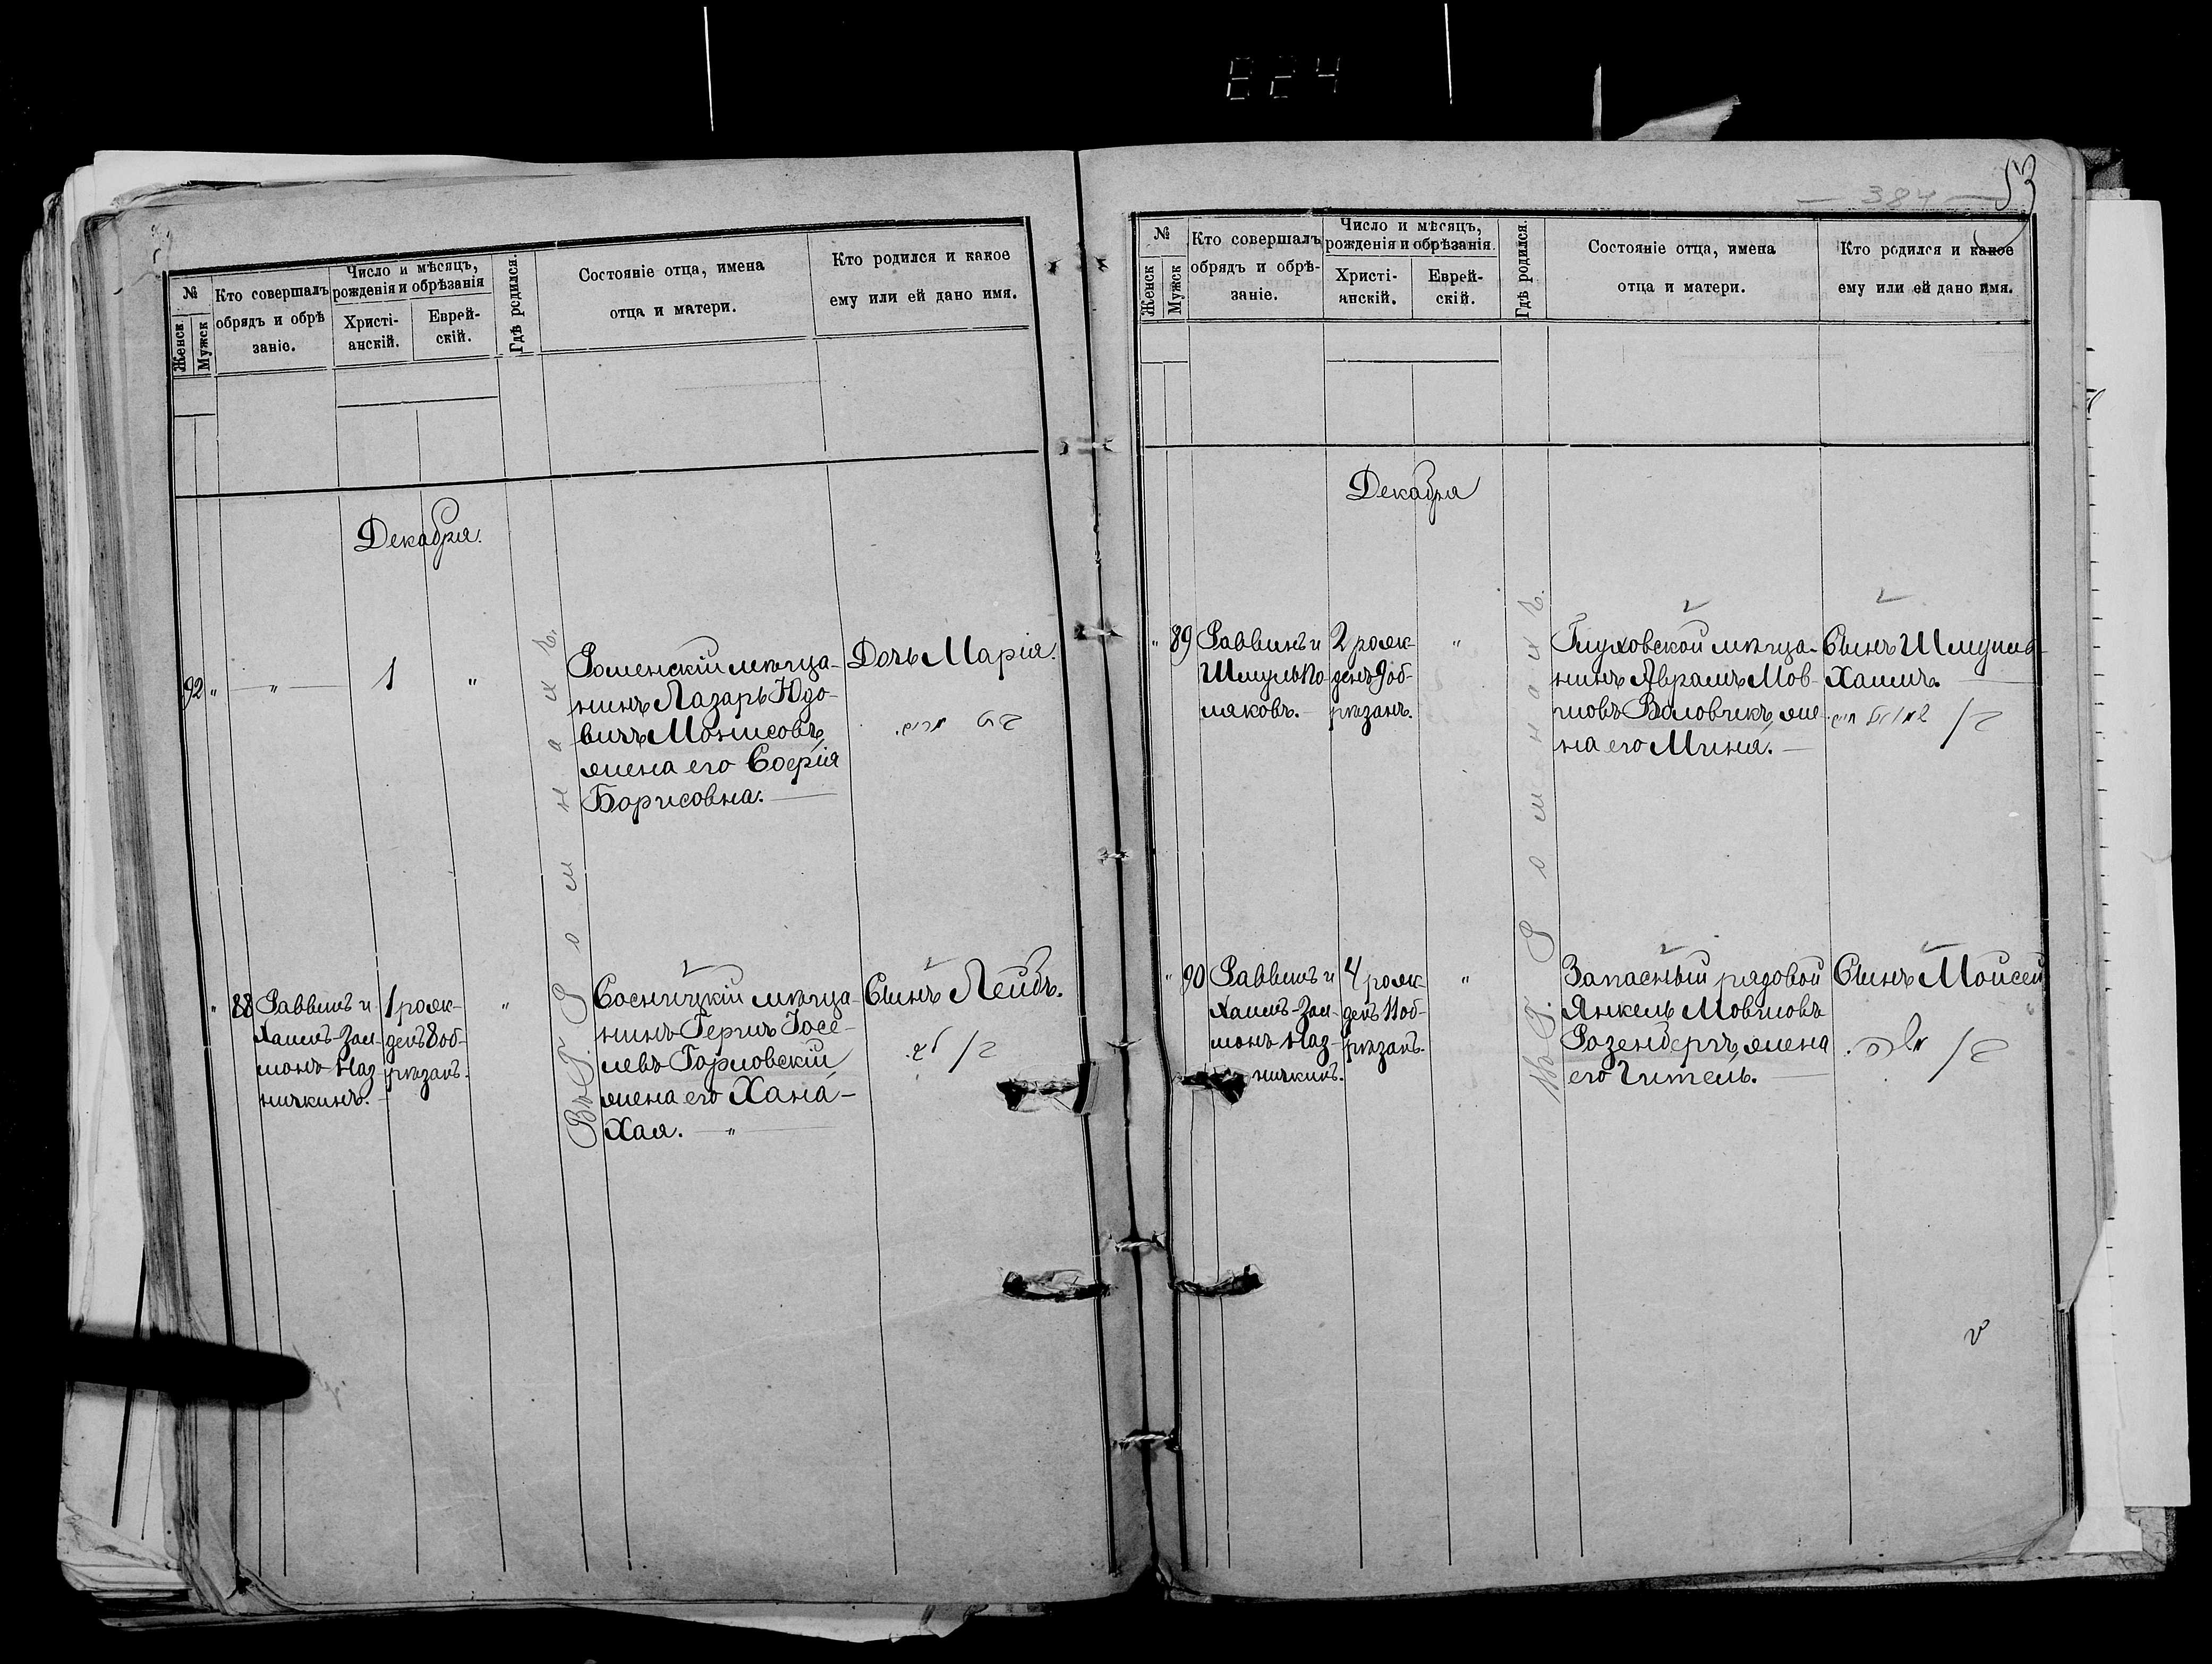 824
№
Женск
Мужск
Кто совершалъ
обрядъ и обрѣ
заніе.
Число и мѣсяцъ,
рожденія и обрѣзанія
Христі-
анскій.
Еврей-
скій.
Гдѣ родился.
Состояніе отца, имена
отца и матери.
Кто родился и какое
ему или ей дано имя.
Декабря.
92 " — " — 1 "
Роменскій мѣща-
нинъ Лазарь Юдо-
вичъ Монисовъ,
жена его Софія
Борисовна. —
Дочь Марія.
" 88
Раввинъ и
Хаимъ-Зал-
монъ Наз-
ничкинъ. —
1 рож-
денъ 8 об-
рѣзанъ.
"
Въ Г. Ромнахъ.
Сосницкій мѣща-
нинъ Гершъ Іосе-
левъ Горловскій
жена его Хана-
Хая. — " —
Сынъ Лейбъ.
— 384 —
53
№
Женск
Мужск
Кто совершалъ
обрядъ и обрѣ-
заніе.
Число и мѣсяцъ,
рожденія и обрѣзанія.
Христі-
анскій.
Еврей-
скій.
Гдѣ родился.
Состояніе отца, имена
отца и матери.
Кто родился и какое
ему или ей дано имя.
Декабря
" 89
Раввинъ и
Шмуль По-
ляковъ. —
2 рож-
денъ 9 об-
рѣзанъ.
"
Глуховской мѣща-
нинъ Абрамъ Мов-
шовъ Воловикъ, же-
на его Мина. —
Сынъ Шмуилъ-
Хаимъ.
" 90
Раввинъ и
Хаимъ-Зал-
монъ Наз-
ничкинъ.
4 рож-
денъ 11 об-
рѣзанъ.
"
Въ Г. Ромнахъ.
Запасный рядовой
Янкель Мовшовъ
Розенбергъ, жена
его Гитель. —
Сынъ Мойсей